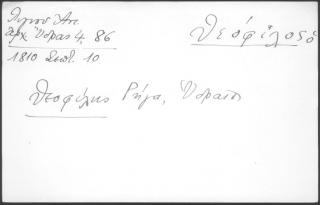 Λιγνού Αν.
Αρχ. Ύδρας 4, 86
1810 Σεπτ. 10
Θεόφιλος
Θεοφίλης Ρήγα, Υδραίος